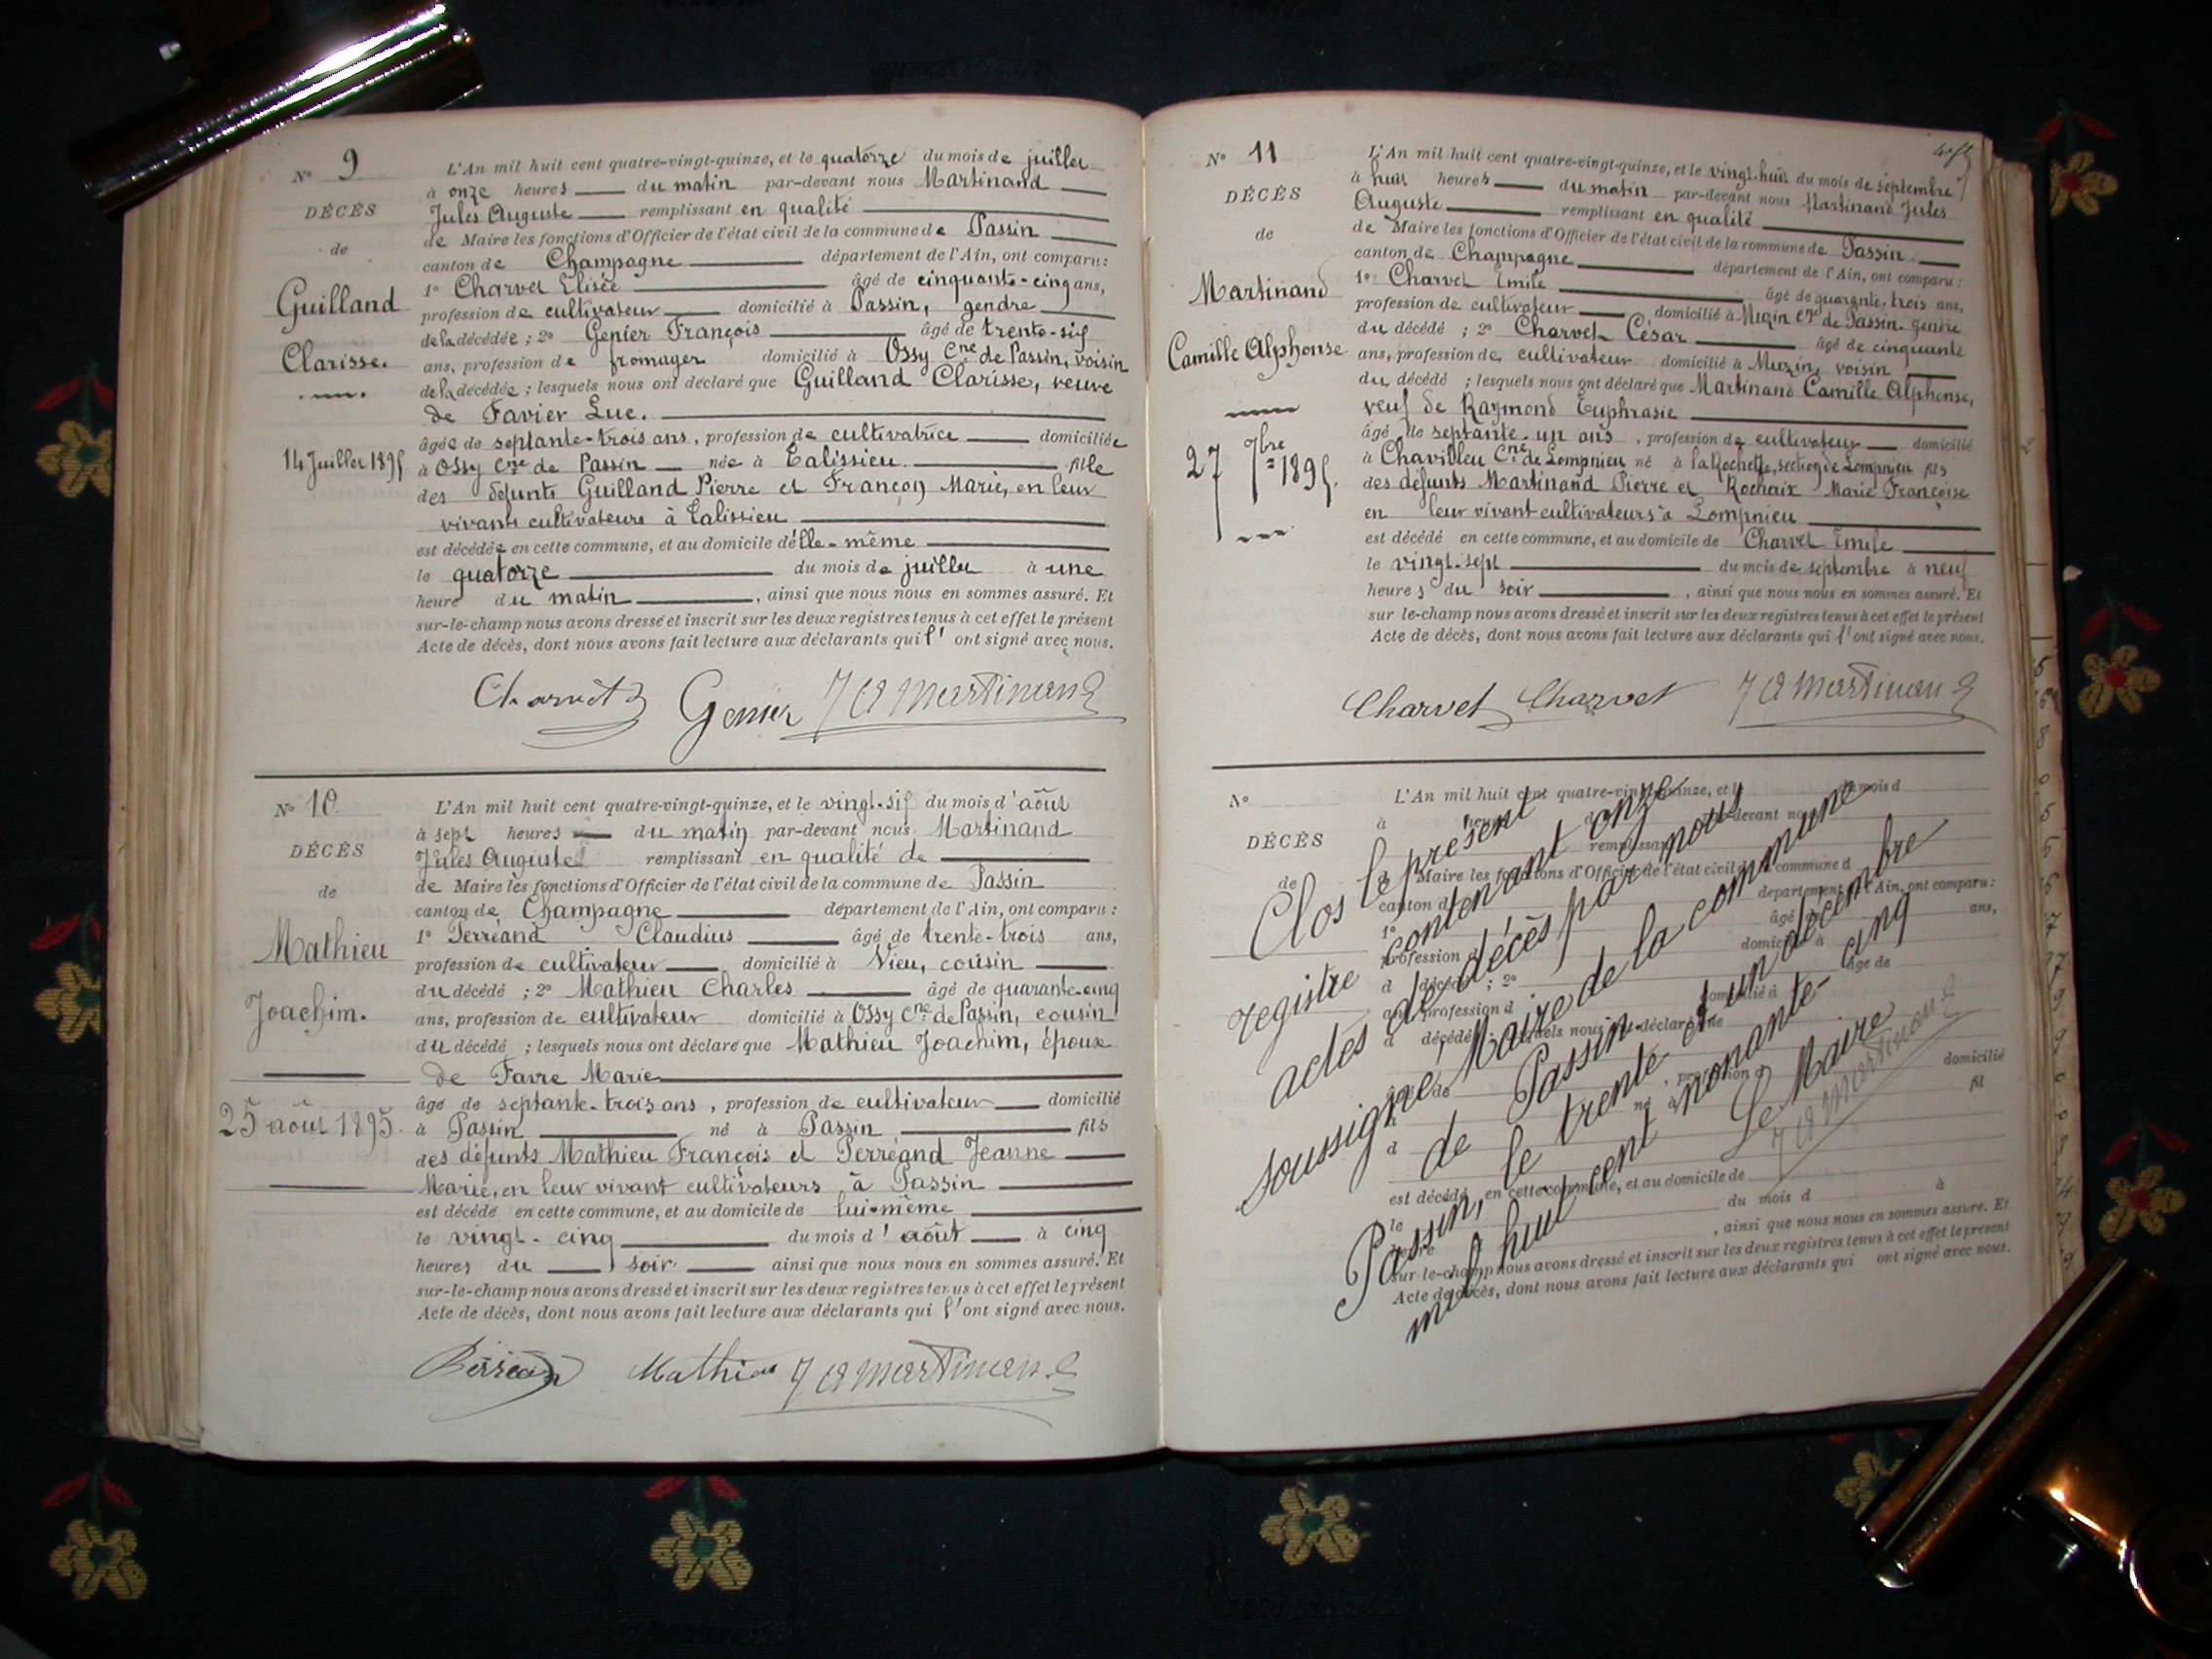 N° 9
DÉCÈS
de
Guilland
Clarisse.
14 Juillet 1895
L'An mil huit cent quatre-vingt-quinze, et le quatorze du mois de juillet
à onze heures du matin par-devant nous Martinand
Jules Auguste remplissant en qualité
de Maire les fonctions d'Officier de l'état civil de la commune de Passin
canton de Champagne département de l'Ain, ont comparu:
1° Charvet Elisée âgé de cinquante-cinq ans,
profession de cultivateur domicilié à Passin, gendre
de la décédée ; 2° Genier François âgé de trente-six
ans, profession de fromager domicilié à Ossy Cne de Passin, voisin
de la décédée ; lesquels nous ont déclaré que Guilland Clarisse, veuve
de Favier Luc.
âgée de septante-trois ans, profession de cultivatrice domiciliée
à Ossy Cne de Passin née à Talissieu. fille
des défunts Guilland Pierre et Françon Marie, en leur
vivants cultivateurs à Talissieu
est décédée en cette commune, et au domicile d'elle-même
le quatorze du mois de juillet à une
heure du matin, ainsi que nous nous en sommes assuré. Et
sur-le-champ nous avons dressé et inscrit sur les deux registres tenus à cet effet le présent
Acte de décès, dont nous avons fait lecture aux déclarants qui l'ont signé avec nous.
Charvet Genier J A Martinand
N° 10
DÉCÈS
de
Mathieu
Joachim.
25 août 1895.
L'An mil huit cent quatre-vingt-quinze, et le vingt-six du mois d'août
à sept heures du matin par-devant nous Martinand
Jules Auguste remplissant en qualité de
de Maire les fonctions d'Officier de l'état civil de la commune de Passin
canton de Champagne département de l'Ain, ont comparu :
1° Perréand Claudius âgé de trente-trois ans,
profession de cultivateur domicilié à Vieu, cousin
du décédé ; 2° Mathieu Charles âgé de quarante-cinq
ans, profession de cultivateur domicilié à Ossy Cne de Passin, cousin
du décédé ; lesquels nous ont déclaré que Mathieu Joachim, époux
de Favre Marie
âgé de septante-trois ans, profession de cultivateur domicilié
à Passin né à Passin fils
des défunts Mathieu François et Perréand Jeanne
Marie, en leur vivant cultivateurs à Passin
est décédé en cette commune, et au domicile de lui-même
le vingt-cinq du mois d'août à cinq
heures du soir ainsi que nous nous en sommes assuré. Et
sur-le-champ nous avons dressé et inscrit sur les deux registres tenus à cet effet le présent
Acte de décès, dont nous avons fait lecture aux déclarants qui l'ont signé avec nous.
Perréand Mathieu J A Martinand
N° 11
DÉCÈS
de
Martinand
Camille Alphonse
27 7bre 1895.
L'An mil huit cent quatre-vingt-quinze, et le vingt-huit du mois de septembre
à huit heures du matin par-devant nous Martinand Jules
Auguste remplissant en qualité
de Maire les fonctions d'Officier de l'état civil de la commune de Passin
canton de Champagne département de l'Ain, ont comparu :
1° Charvet Emile âgé de quarante-trois ans,
profession de cultivateur domicilié à Muzin Cne de Passin. gendre
du décédé ; 2° Charvet César âgé de cinquante
ans, profession de cultivateur domicilié à Muzin, voisin
du décédé ; lesquels nous ont déclaré que Martinand Camille Alphonse,
veuf de Raymond Euphrasie
âgé de septante-un ans, profession de cultivateur domicilié
à Chavilleu Cne de Lompnieu né à la Rochette, section de Lompnieu fils
des défunts Martinand Pierre et Rochaix Marie Françoise
en leur vivant cultivateurs à Lompnieu
est décédé en cette commune, et au domicile de Charvet Emile
le vingt-sept du mois de septembre à neuf
heures du soir, ainsi que nous nous en sommes assuré. Et
sur-le-champ nous avons dressé et inscrit sur les deux registres tenus à cet effet le présent
Acte de décès, dont nous avons fait lecture aux déclarants qui l'ont signé avec nous.
Charvet Charvet J A Martinand
N°
DÉCÈS
de
L'An mil huit cent quatre-vingt-quinze, et l du mois d
à heure d par-devant nous
remplissant
d Maire les fonctions d'Officier de l'état civil de la commune d
canton d département de l'Ain, ont comparu :
1° âgé de ans,
profession d domicilié à
d décédé ; 2° âgé de
ans, profession d domicilié à
d décédé ; lesquels nous ont déclaré que
âgé de , profession d domicilié
à né à fil
d
est décédé en cette commune, et au domicile de
le du mois d à
heure d , ainsi que nous nous en sommes assuré. Et
sur-le-champ nous avons dressé et inscrit sur les deux registres tenus à cet effet le présent
Acte de décès, dont nous avons fait lecture aux déclarants qui ont signé avec nous.
Clos le présent
registre contenant onze
actes de décès par nous
soussigné Maire de la commune
de Passin
Passin, le trente et un décembre
mil huit cent nonante-cinq
Le Maire
J A Martinand